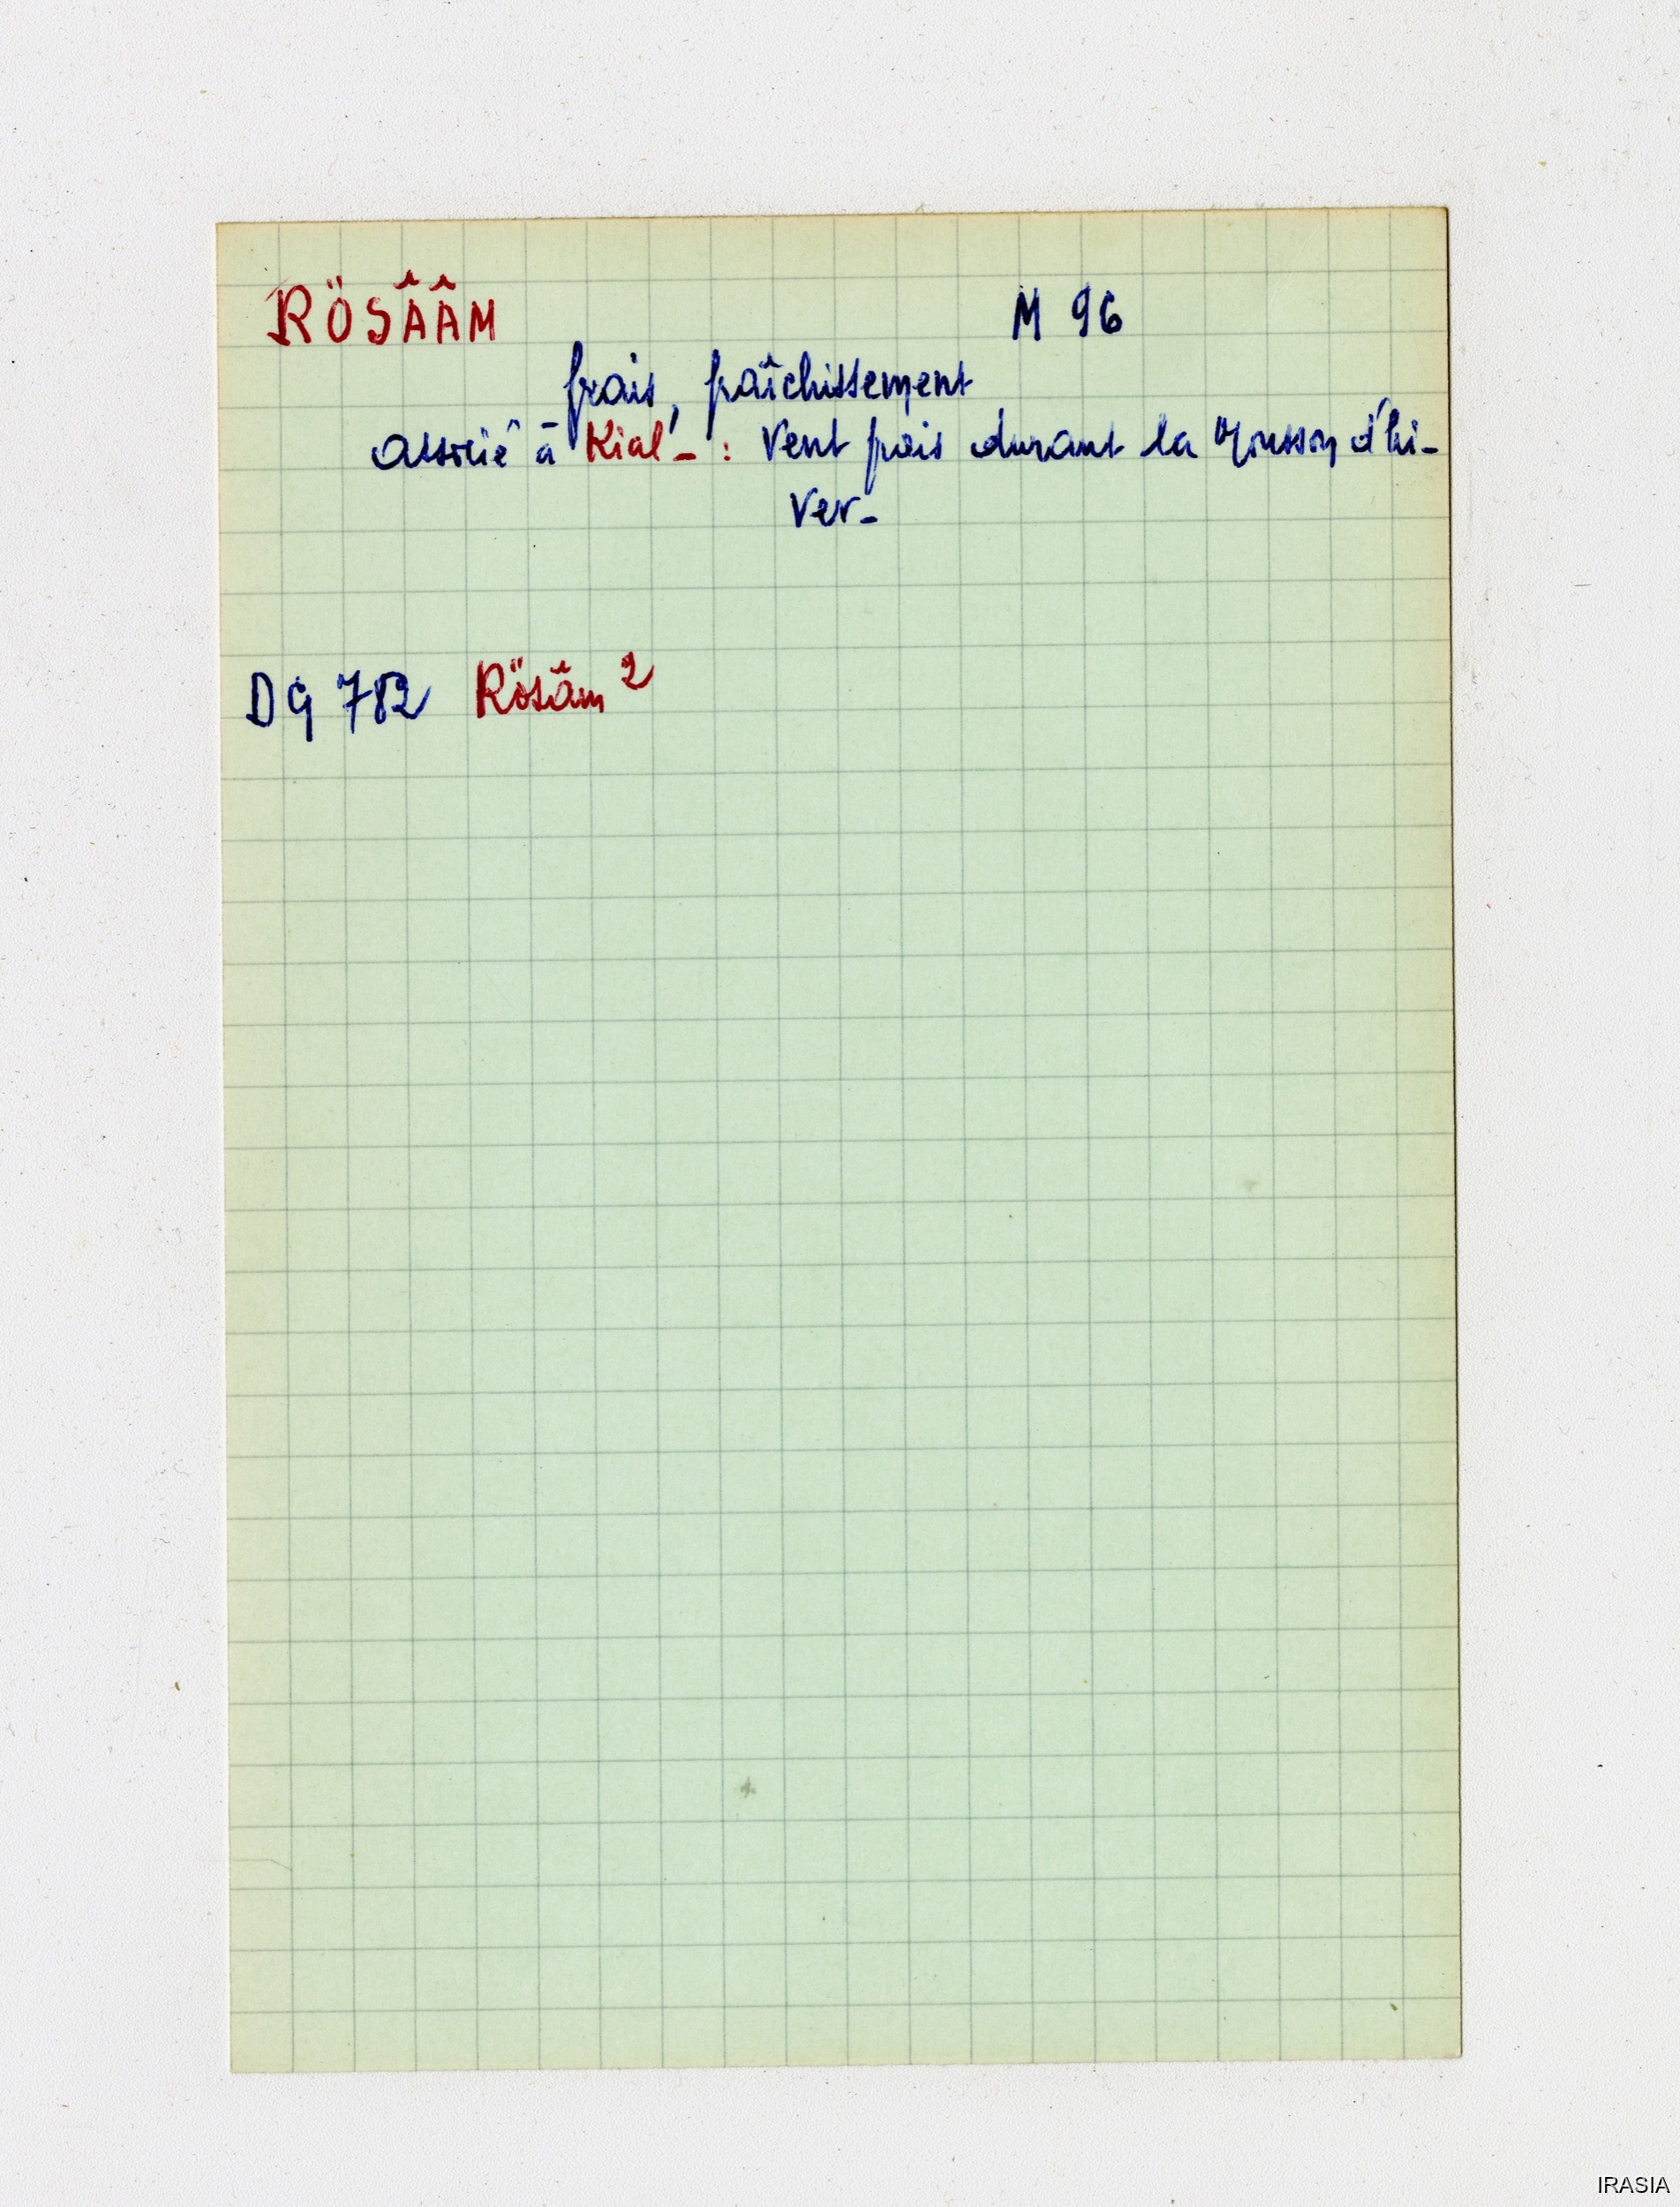 RÖSÂÂM M 96
frais, fraîchissement
associé à Kial - : Vent frais durant la Mousson d'hi-
ver -
DG 782 Rösâm 2
IRASIA